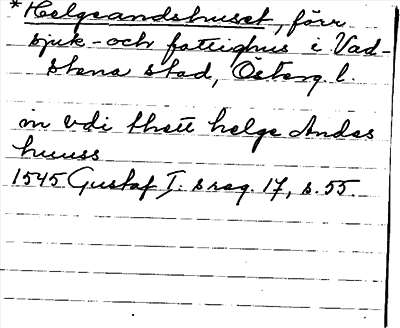 *Helgeandshuset, förr
sjuk- och fattighus i Vad-
stena stad, Österg. l.
in vdi thett helge Andas
huuss
1545 Gustaf I:s reg. 17, s. 55.